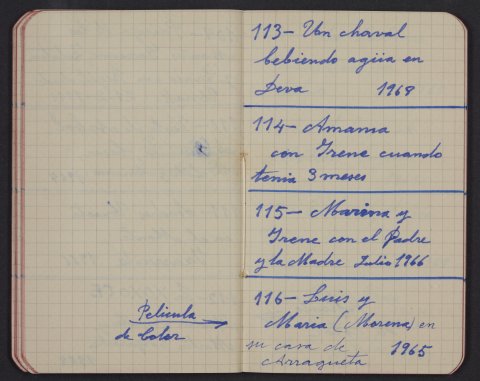 113- Un chaval
bebiendo agüa en
Deva 1968
114- Amama
con Irene cuando
tenia 3 meses
115- Marina y
Irene con el Padre
y la Madre Julio 1966
Pelicula
de Color
116- Luis y
Maria (Morena) en
su casa de 1965
Arragueta